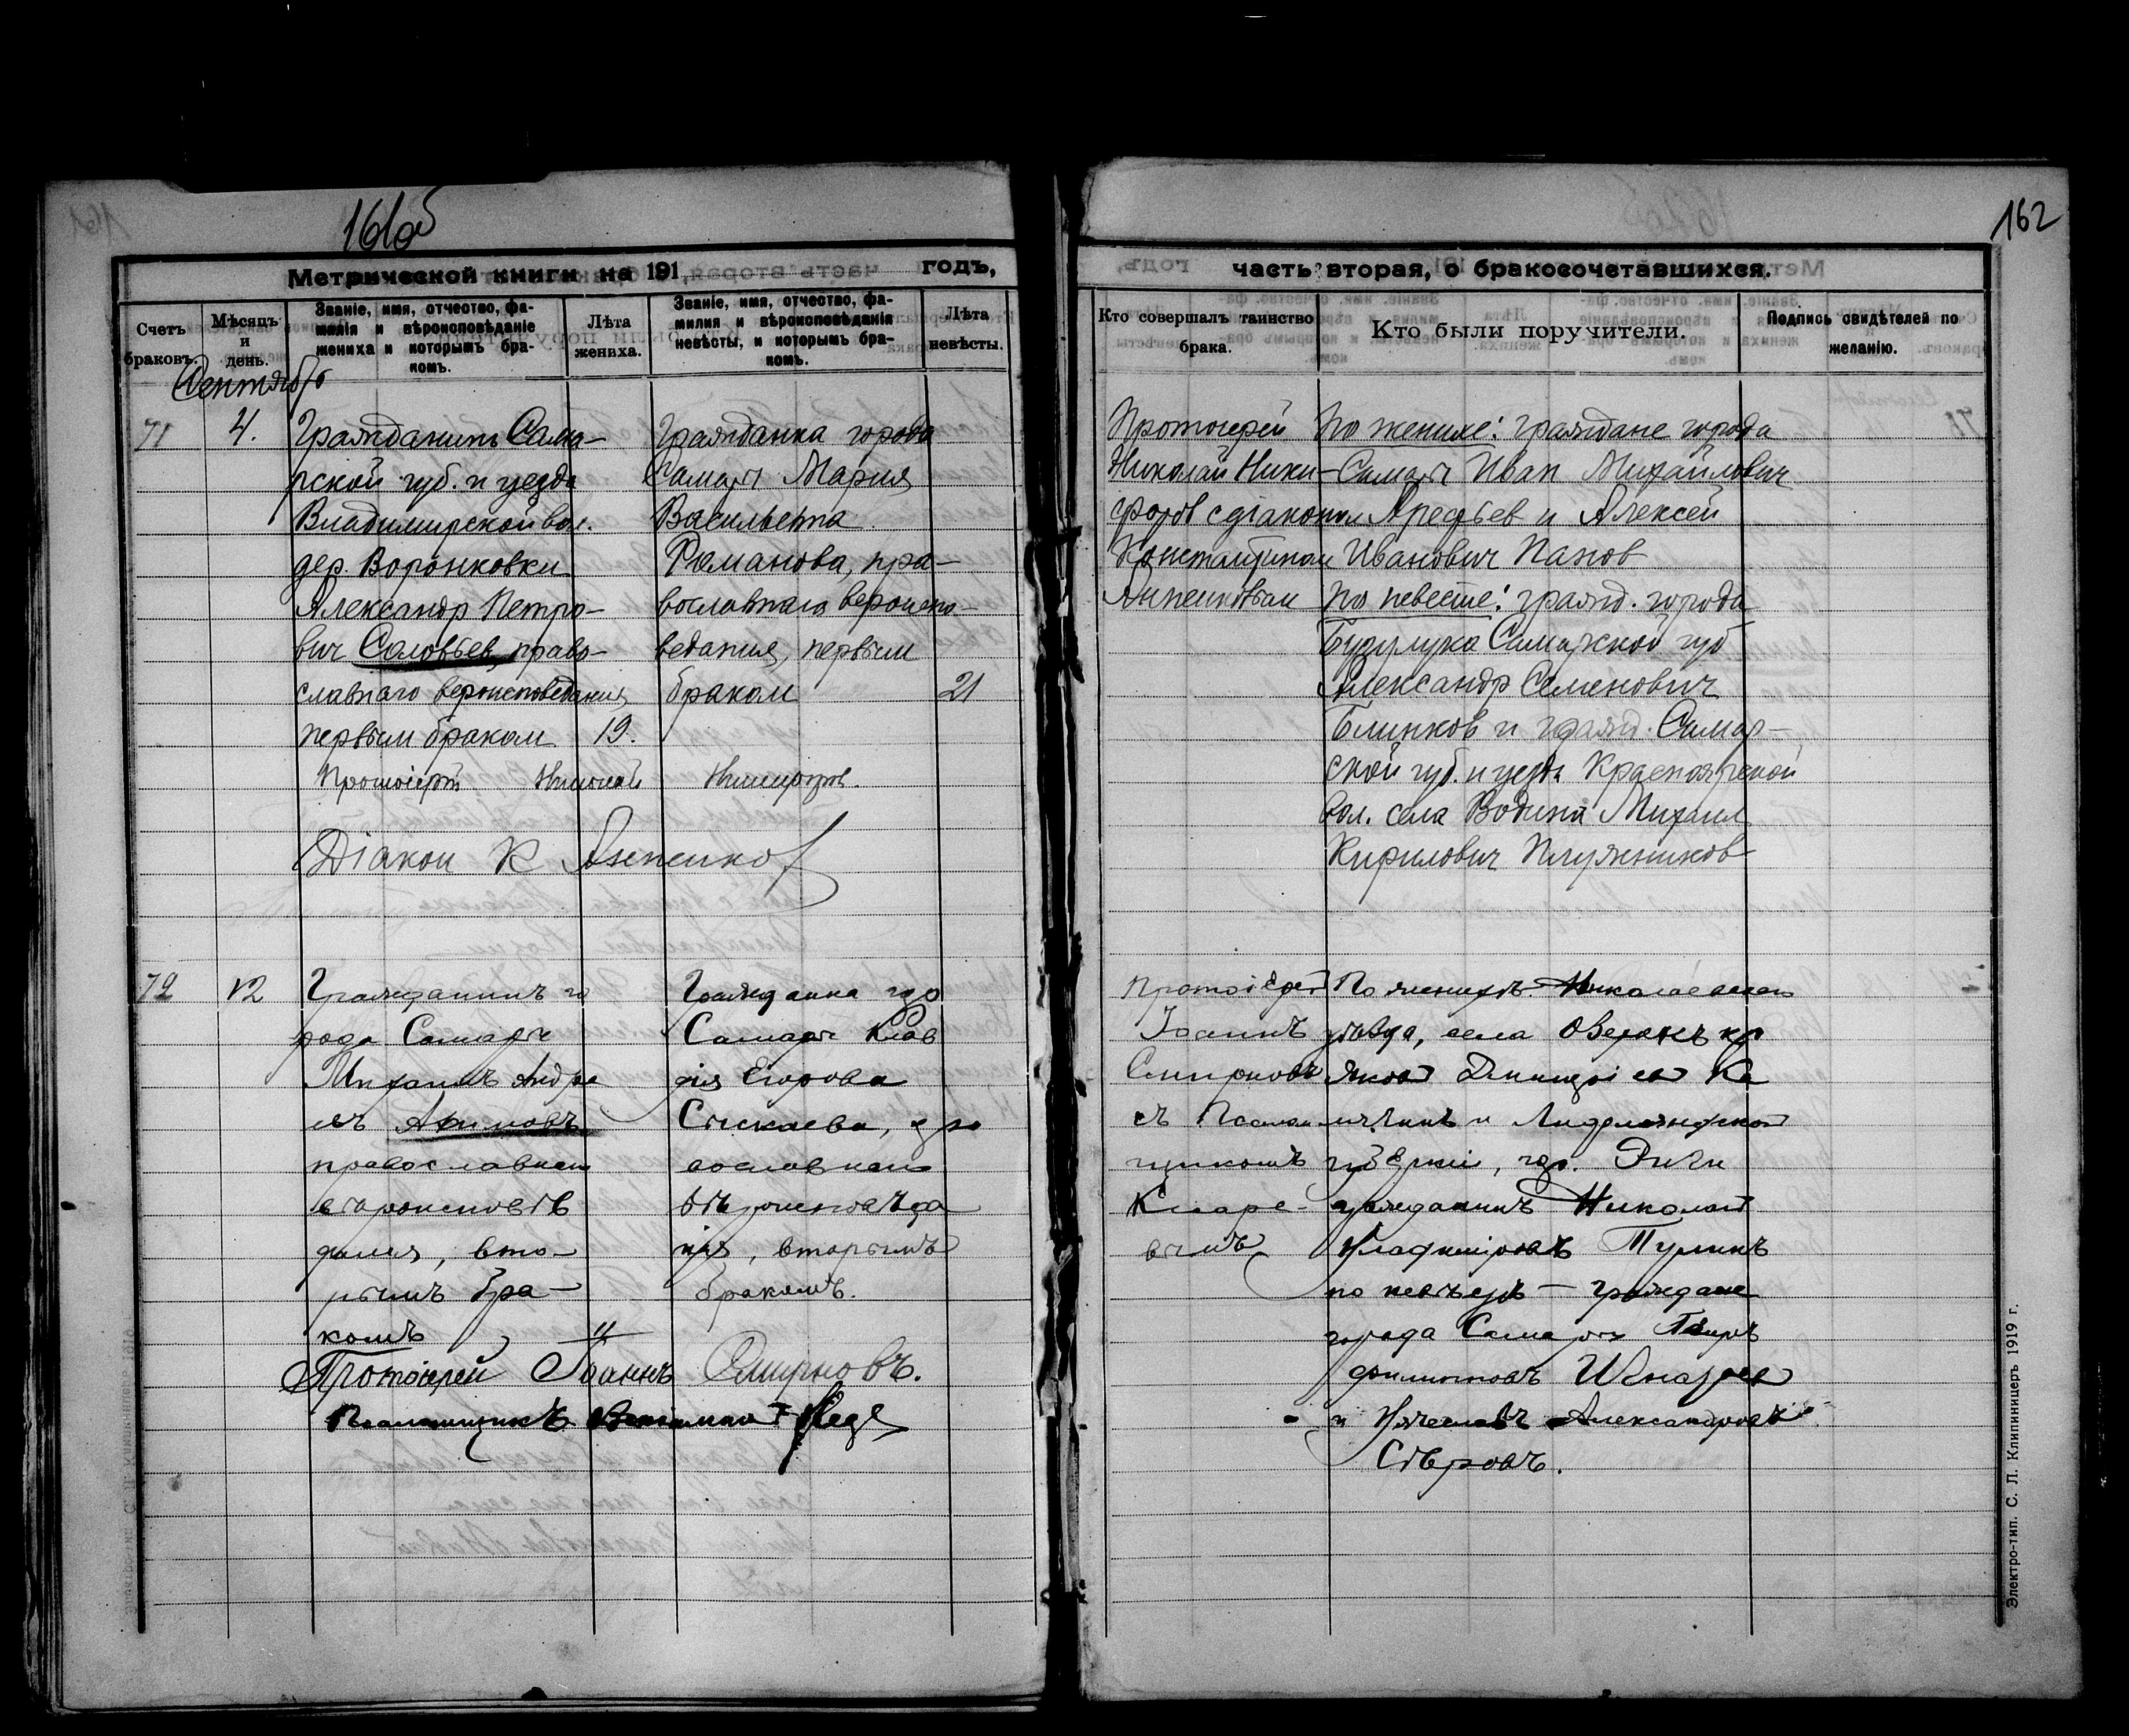 161об
162
Метрической книги на 191 годъ,
часть вторая, о бракосочетавшихся.
Счетъ браковъ.
Мѣсяцъ и день.
Званіе, имя, отчество, фамилія и вѣроисповѣданіе жениха и которымъ бракомъ.
Лѣта жениха.
Званіе, имя, отчество, фамилия и вѣроисповѣданія невѣсты, и которымъ бракомъ.
Лѣта невѣсты.
Кто совершалъ таинство брака.
Кто были поручители.
Подпись свидѣтелей по желанію.
Сентябрь
71
4.
Гражданин Сама-
рской губ. и уезда
Владимирской вол.
дер. Воронковки
Александр Петро-
вич Соловьев, право-
славнаго вероисповедания
первым браком
19.
Гражданка города
Самары Мария
Васильевна
Романова, пра-
вославнаго вероиспо-
ведания, первым
браком
21
Протоиерей
Николай Ники-
форов с диаконом
Константином
Анненковым
По жениху: граждане города
Самары Иван Михайлович
Арефьев и Алексей
Иванович Панов
По невесте: гражд. города
Бузулука Самарской губ
Александр Семенович
Блинков и гражд. Самар-
ской губ. и уезда Красноярской
вол. села Водина Михаил
Кирилович Плужников
Протоіерей Николай Никифоров.
Діакон К Анненков
72
12
Гражданинъ го
рода Самары
Михаилъ Андре
евъ Акимовъ
православнаго
вѣроисповѣ
данія, вто-
рымъ бра-
комъ
Гражданка гор
Самары Клав
дія Егорова
Сыскаева, пра
вославнаго
вѣроисповѣда
нія, вторымъ
бракомъ.
Протоіерей
Іоаннъ
Смирновъ
съ Псалом
щикомъ
По женихѣ: Николаевскаго
уѣзда, села Озерокъ кр
Яков Дмитріев Ка
губерніи, гор. Риги
гражданинъ Николай
Владиміровъ Тулинъ
по невѣстѣ - граждане
города Самары Петръ
Филиповъ
и Вячеславъ Александровъ
Сѣровъ.
Протоіерей Іоаннъ Смирновъ.
Псаломщикъ
Электро-тип. С. Л. Клипиницеръ 1919 г.